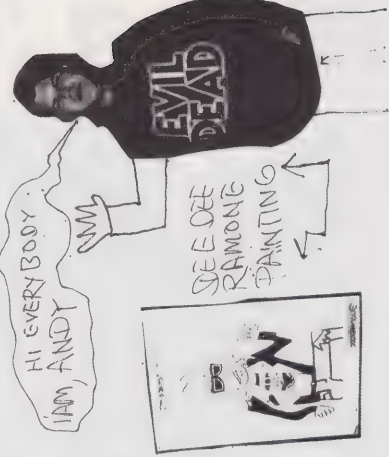 HI EVERYBODY
IAM, ANDY
EVIL
DEAD
DEE DEE
RAMONE
PAINTING